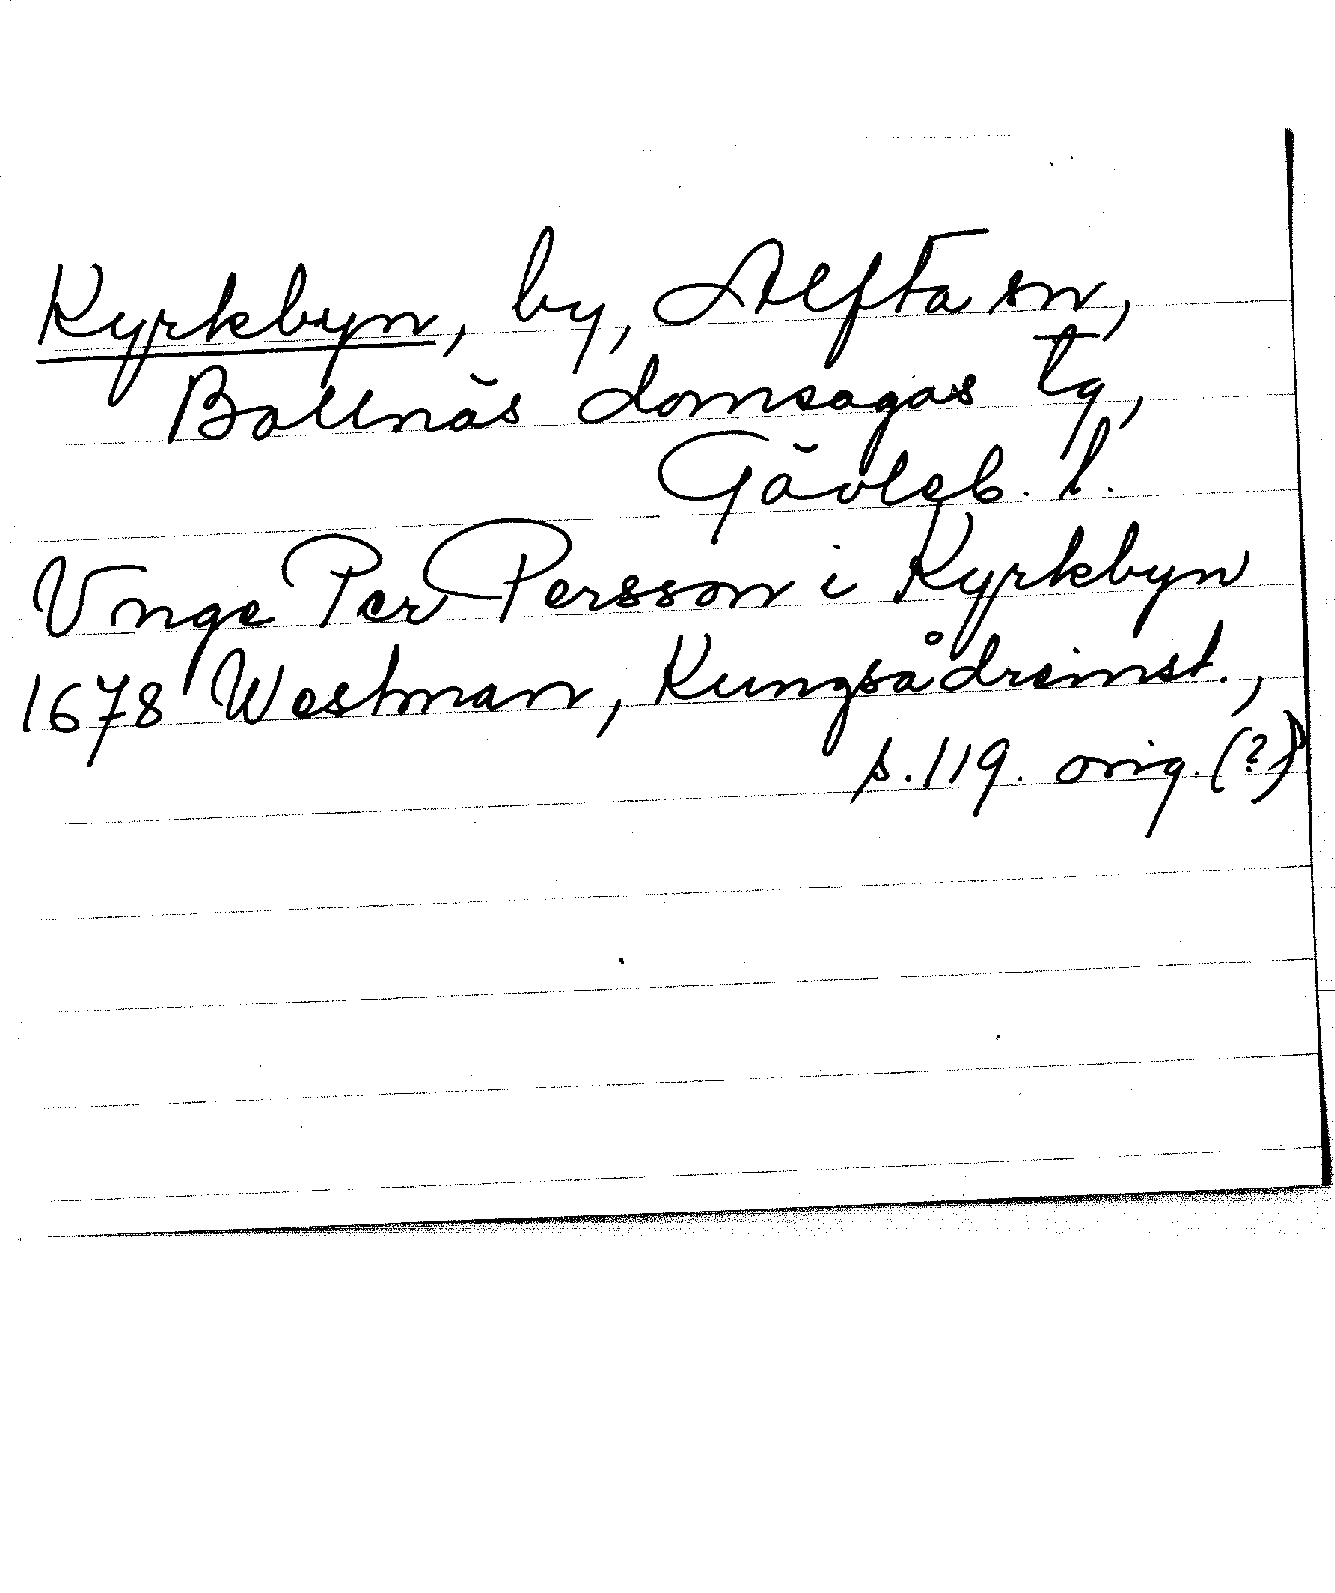 Kyrkbyn, by, Alfta sn,
Bollnäs domsagas tg,
Gävleb. l.
Unge Per Persson i Kyrkbyn
1678 Westman, Kungsådreinst.,
s. 119. orig. (?)